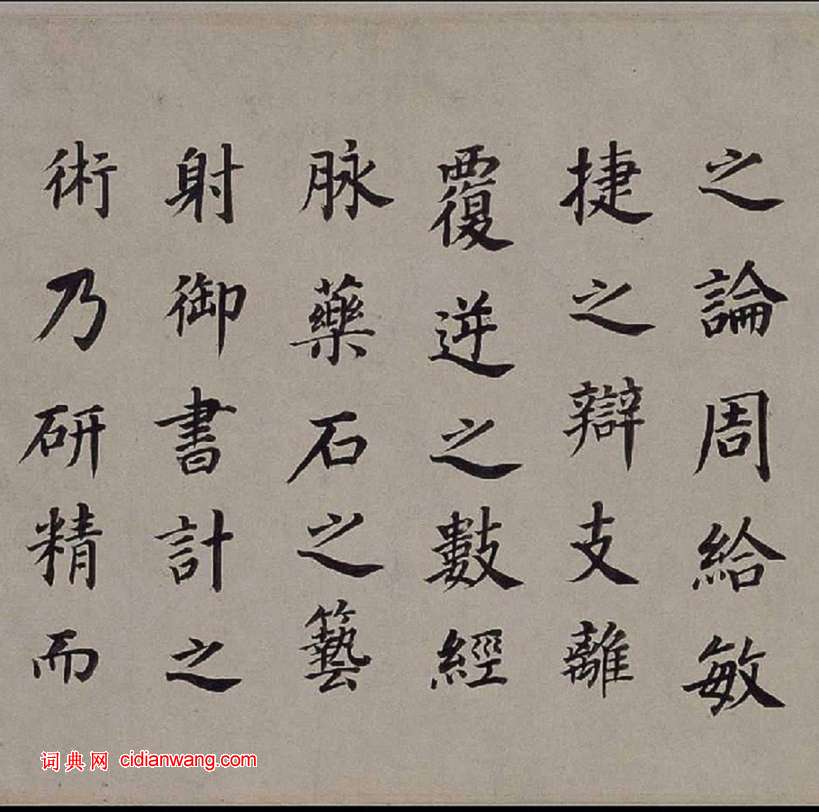 之論周給敏
捷之辯支離
覆逆之數經
脉藥石之藝
射御書計之
術乃研精而
词典网 cidianwang.com